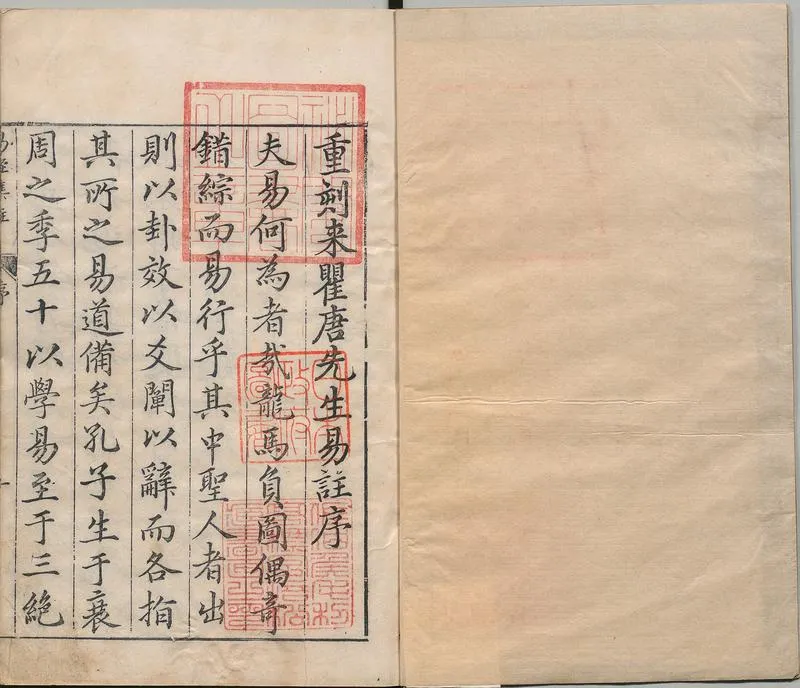 重刻来瞿唐先生易註序
夫易何為者哉龍馬負圖偶奇
錯綜而易行乎其中聖人者出
則以卦效以爻闡以辭而各指
其所之易道備矣孔子生于衰
周之季五十以學易至于三絕
易經集註
序